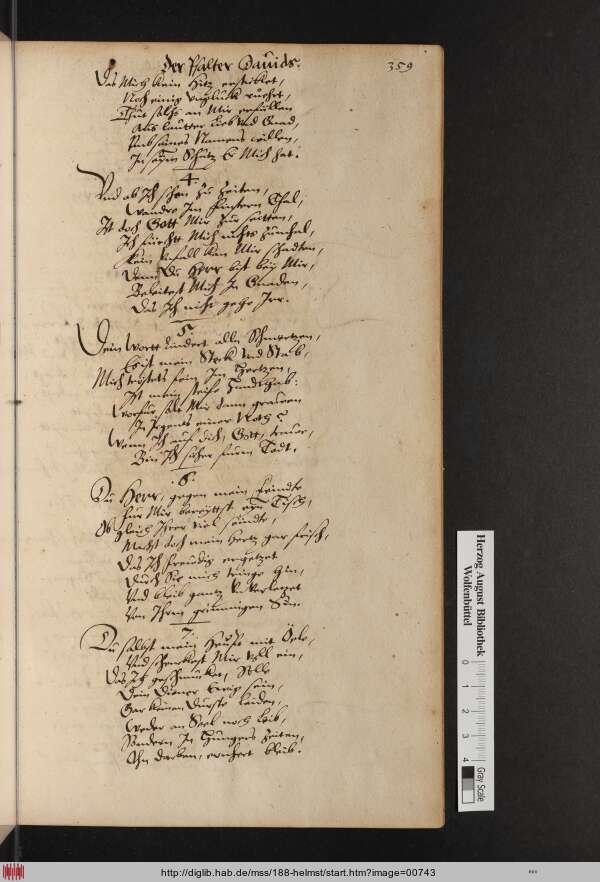 der Psalter Dauids.
359
Das Mich kein Hitz ersticket,
Noch einig vnglück rühret,
Thut solchs an Mir erfüllen
Aus lautter Lieb vnd Gnad,
seines Namens willen,
In seym Schutz Er Mich hat.
4.
Vnd ob Ich schon zu Zeiten,
Wandre Im finstern Thal,
Ist doch Gott Mir zur seitten,
Ich fürchtt Mich nichts zumhal,
Kein vnfall kan Mir schadten,
Denn Du Herr bist bey Mir,
Beleitest Mich In Gnaden,
Das Ich nicht gehe Irr.
5.
Dein Wortt lindert alln Schmertzen,
Es ist mein Steck vnd Stab,
Mich tröstets fein Im Hertzen,
Ist mein
Worfür solt Mir dann grauen
In Irgents einer Noth?
Wenn Ich auf dich, Gott, traue,
Bin Ich sicher fürm Todt.
6.
Du Herr, gegen mein feindte
für Mir bereyttst eyn Tisch,
Ob gleich Ihrer viel seindte,
Macht doch mein Hertz gar frisch,
Das Ich freudig ergetzet
Durch Sie mich tringe hin,
Vnd bleib gantz vnverletzet
Von Ihrem grimmigen Sin.
7.
Du salbst mein Haupt mit Öele,
Vnd schenckest Mir voll ein,
Das Ich geschmücket, solle
Dein Diener Ewig sein,
Gar keinen Durste leiden,
Weder an Seel noch Leib,
Sondern In Hungers Zeiten,
Ohn darben, ernehrt bleib.
Herzog August Bibliothek
Wolfenbüttel
0 1 2 3 4
Gray Scale
http://diglib.hab.de/mss/188-helmst/start.htm?image=00743